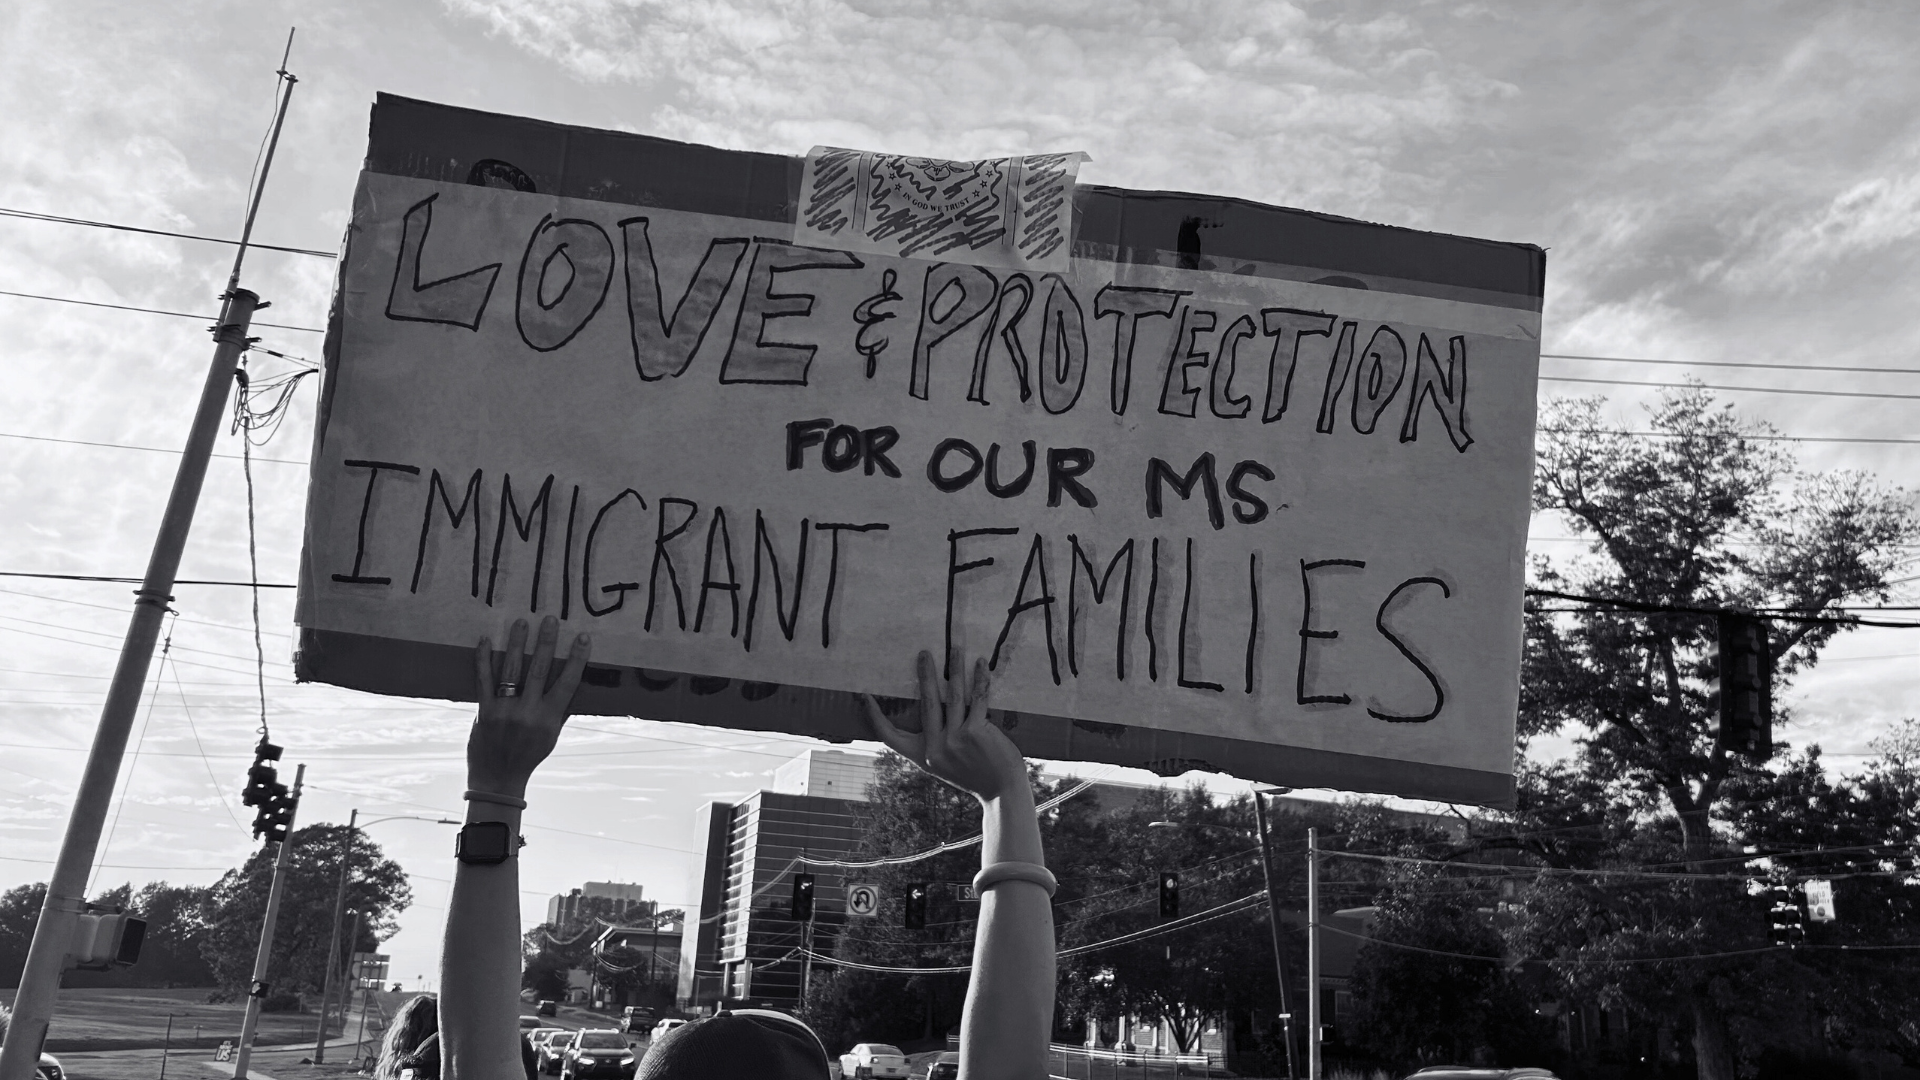 IN GOD WE TRUST
LOVE & PROTECTION
FOR OUR MS
IMMIGRANT FAMILIES